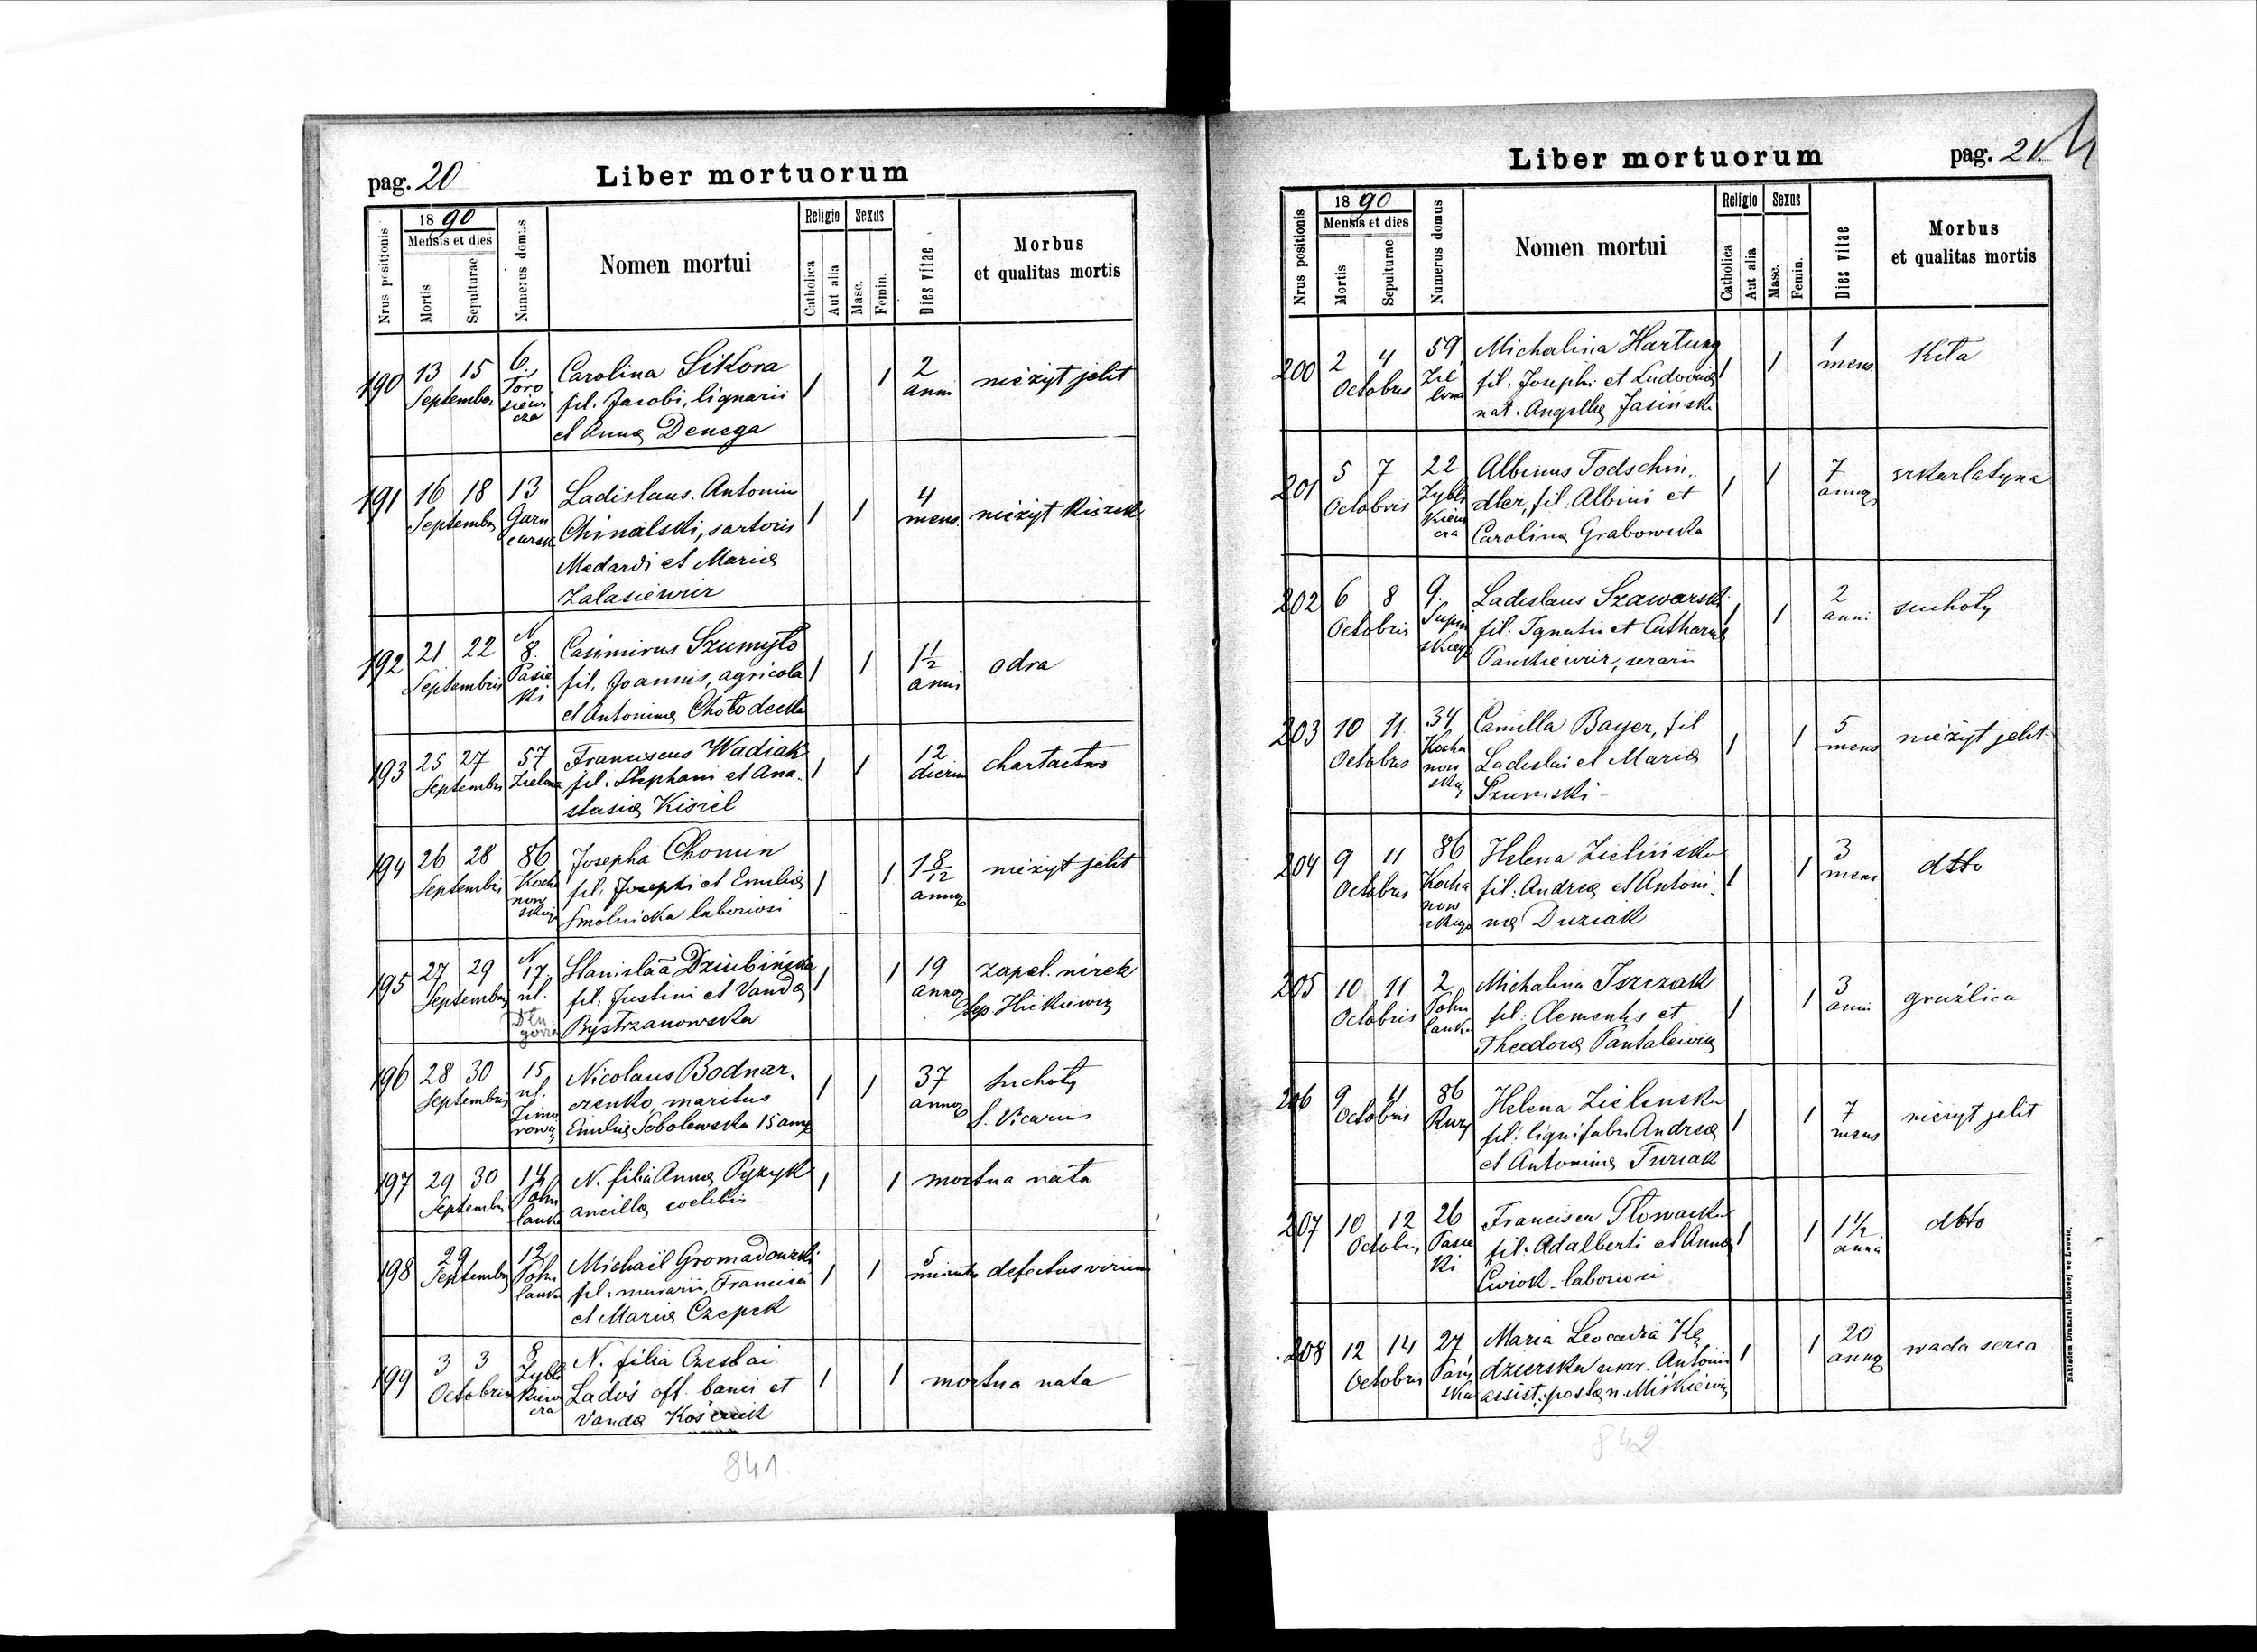 pag. 20
Liber mortuorum
Nrus positionis
1890
Mensis et dies
Mortis
Sepulturae
Numerus domus
Nomen mortui
Religio
Catholica
Aut alia
Sexus
Masc.
Femin.
Dies vitae
Morbus
et qualitas mortis
190 13 15 6. Carolina Sikora 1 1 2 nieżyt jelit
September Toro fil. Jacobi, lignarii anni
siewi cza et Annæ Denega
191 16 18 13 Ladislaus Antonius 1 1 4 nieżyt kiszek
Septembris Garn Chinalski, sartoris mens.
carsk Medardi et Mariæ
Zalasiewicz
192 21 22 N 8. Casimirus Szumyło 1 1 1 1/2 odra
Septembris Pasie fil. Joannis, agricola anni
ki et Antoninæ Chołodecka
193 25 27 57 Franciscus Wadiak 1 1 12
Septembris Zielona fil. Stephani et Ana- dierum
stasiæ Kisiel
194 26 28 86 Josepha Chomin 1 1 1 8/12 nieżyt jelit
Septembris Kocha fil. Josephi et Emiliæ annor
now Smolnicka laboriosi
195 27 29 N 17. Stanislaa Dziubińska 1 1 19 zapal. nerek
Septembris ul. fil. Justini et Vandæ annor sep. Hickiewicz
Długosza Bystrzanowska
196 28 30 15 Nicolaus Bodnar- 1 1 37 suchoty
Septembris ul. czenko, maritus annor S. Vicarius
Zimorowi Emiliæ Sobolewska 15 annor
197 29 30 14 N. filia Annæ Pyzyk 1 1 mortua nata
Septembris Pohu lanka ancillæ coelibis
198 29 12 Michael Gromadowski 1 1 5 defectus virium
Septembris Pohu fil. murarii, Francisci minut
lanka et Mariæ Czepek
199 3 3 8 N. filia Czeslai 1 1 mortua nata
Octobris Zybli Ladoś off. banci et
kiewi cza Vandæ
841
Liber mortuorum
pag. 21.
Nrus positionis
1890
Mensis et dies
Mortis
Sepulturae
Numerus domus
Nomen mortui
Religio
Catholica
Aut alia
Sexus
Masc.
Femin.
Dies vitae
Morbus
et qualitas mortis
200 2 4 59 Michalina Hartung 1 1 1 Kiła
Octobris Zie fil. Josephi et Ludovicæ mens
lona nat. Angellæ Jasińsk
201 5 7 22 Albinus Todschin- 1 1 7 szkarlatyna
Octobris Zybli dler, fil. Albini et annor
kiewi cza Carolinæ Grabowska
202 6 8 9. Ladislaus Szawarski 1 1 2 suchoty
Octobris fil. Ignatii et Catharinæ anni
Pankiewicz,
203 10 11 34 Camilla Bayer, fil 1 1 5 nieżyt jelit
Octobris Kocha Ladislai et Mariæ mens
now skieg Szumski
204 9 11 86 Helena Zielińska 1 1 3 dtto
Octobris Kocha fil. Andreæ et Antoni- mens
now skiego næ Duziak
205 10 11 2 Michalina Iszczak 1 1 3 gruźlica
Octobris Pohu fil. Clementis et anni
lanka Theodoræ Pantalewicz
206 9 11 86 Helena Zielinska 1 1 7 nieżyt jelit
Octobris fil. lignifabri Andreæ mens
et Antoninæ Turiak
207 10 12 26 Francisca Słowacka 1 1 1 1/2 dtto
Octobris Pasie fil. Adalberti et Annæ
ki Cwiok laboriosi
208 12 14 27 Maria Leocadia Kę 1 1 20 wada serca
Octobris Pań dzierska uxor. Antonii annor
ska assist. post. n. Miśkiewicz
842
Nakładem Drukarni Ludowej we Lwowie.